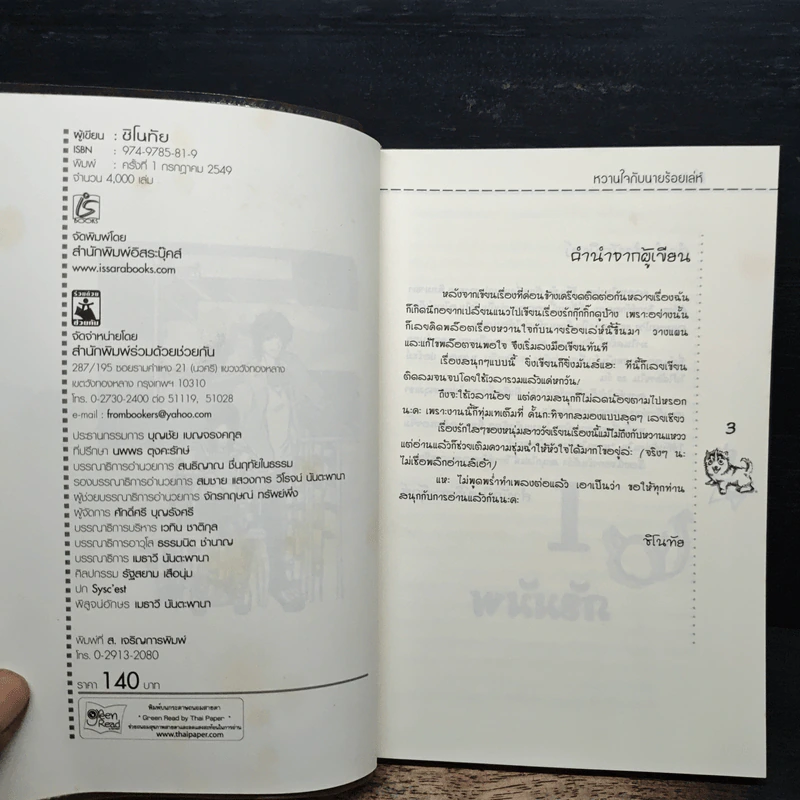 ผู้เขียน : ชิโนทัย
ISBN : 974-9785-81-9
พิมพ์ : ครั้งที่ 1 กรกฎาคม 2549
จำนวน 4,000 เล่ม
is
BOOKS
จัดพิมพ์โดย
สำนักพิมพ์อิสระบุ๊คส์
www.issarabooks.com
ร่วมด้วย
ช่วยกัน
จัดจำหน่ายโดย
สำนักพิมพ์ร่วมด้วยช่วยกัน
287/195 ซอยรามคำแหง 21 (นวศรี) แขวงวังทองหลาง
เขตวังทองหลาง กรุงเทพฯ 10310
โทร. 0-2730-2400 ต่อ 51119, 51028
e-mail : frombookers@yahoo.com
ประธานกรรมการ บุญชัย เบญจรงคกุล
ที่ปรึกษา นพพร ตุงคะรักษ์
บรรณาธิการอำนวยการ สนธิญาณ ชื่นฤทัยในธรรม
รองบรรณาธิการอำนวยการ สมชาย แสวงการ วิโรจน์ นันตะพานา
ผู้ช่วยบรรณาธิการอำนวยการ จักรกฤษณ์ ทรัพย์พึ่ง
ผู้จัดการ ศักดิ์ศรี บุญรังศรี
บรรณาธิการบริหาร เวทิน ชาติกุล
บรรณาธิการอาวุโส ธรรมนิต ชำนาญ
บรรณาธิการ เมธาวี นันตะพานา
ศิลปกรรม รัฐสยาม เสือนุ่ม
ปก Sysc'est
พิสูจน์อักษร เมธาวี นันตะพานา
พิมพ์ที่ ส. เจริญการพิมพ์
โทร. 0-2913-2080
ราคา 140 บาท
green
Read
พิมพ์บนกระดาษถนอมสายตา
" Green Read by Thai Paper "
ช่วยถนอมสุขภาพสายตาและลดแสงสะท้อนในการอ่าน
www.thaipaper.com
หวานใจกับนายร้อยเล่ห์
คำนำจากผู้เขียน
หลังจากเขียนเรื่องที่ค่อนข้างเครียดติดต่อกันหลายเรื่องฉัน
ก็เกิดนึกอยากเปลี่ยนแนวไปเขียนเรื่องรักกุ๊กกิ๊กดูบ้าง เพราะอย่างนั้น
ก็เลยคิดพล็อตเรื่องหวานใจกับนายร้อยเล่ห์นี้ขึ้นมา วางแผน
และแก้ไขพล็อตจนพอใจ จึงเริ่มลงมือเขียนทันที
เรื่องสนุกๆแบบนี้ ยิ่งเขียนก็ยิ่งมันส์แฮะ ทีนี้ก็เลยเขียน
ติดลมจนจบโดยใช้เวลารวมแล้วแค่หกวัน!
ถึงจะใช้เวลาน้อย แต่ความสนุกก็ไม่ลดน้อยตามไปหรอก
นะคะ เพราะงานนี้ก็ทุ่มเทเต็มที่ คั้นกะทิจากสมองแบบสุดๆ เลยเชียว
เรื่องรักใสๆของหนุ่มสาววัยเรียนเรื่องนี้แม้ไม่ถึงกับหวานแหวว
แต่อ่านแล้วก็ช่วยเติมความชุ่มฉ่ำให้หัวใจได้มากโขอยู่ล่ะ (จริงๆ นะ
ไม่เชื่อพลิกอ่านสิเอ้า)
แหะ ไม่พูดพร่ำทำเพลงต่อแล้ว เอาเป็นว่า ขอให้ทุกท่าน
สนุกกับการอ่านแล้วกันนะคะ
ชิโนทัย
3